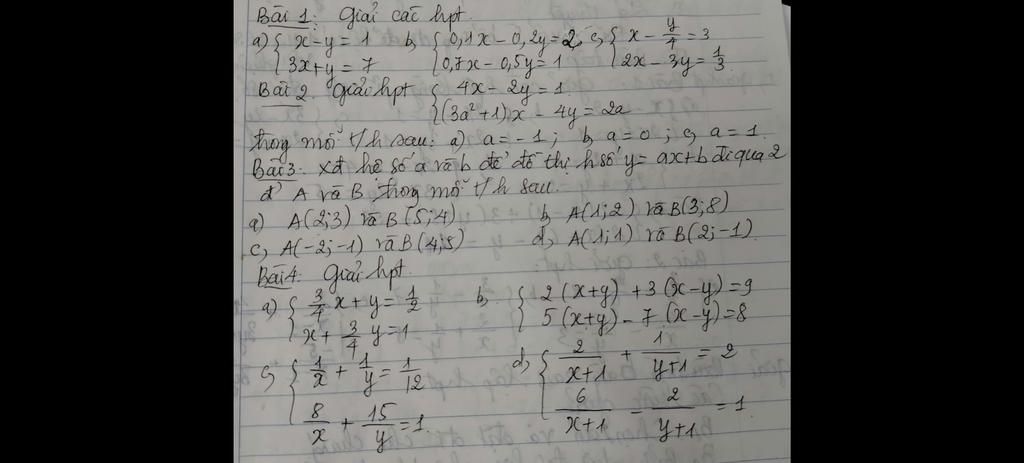 Bài 1: Giải các hpt.
a) { x-y = 1 b, { 0,1x - 0,2y = 2, c, { x - y/4 = 3
3x+y = 7 0,7x - 0,5y = 1 2x - 3y = 1/3
Bài 2. Giải hpt { 4x - 2y = 1
(3a²+1)x - 4y = 2a
trong mỗi t/h sau: a) a = -1; b, a = 0; c, a = 1.
Bài 3: xđ hệ số a và b để đồ thị h số y = ax+b đi qua 2
đ' A và B trong mỗi t/h sau.
a) A(2;3) và B(5;4) b, A(1;2) và B(3;8)
c, A(-2;-1) và B(4;5) d, A(1;1) và B(2;-1)
Bài 4: Giải hpt.
a) { 3/4 x + y = 1/2 b, { 2(x+y) + 3(x-y) = 9
x + 3/4 y = 1 5(x+y) - 7(x-y) = 8
c, { 1/x + 1/y = 1/12 d, { 2/x+1 + 1/y+1 = 2
8/x + 15/y = 1. 6/x+1 - 2/y+1 = 1.